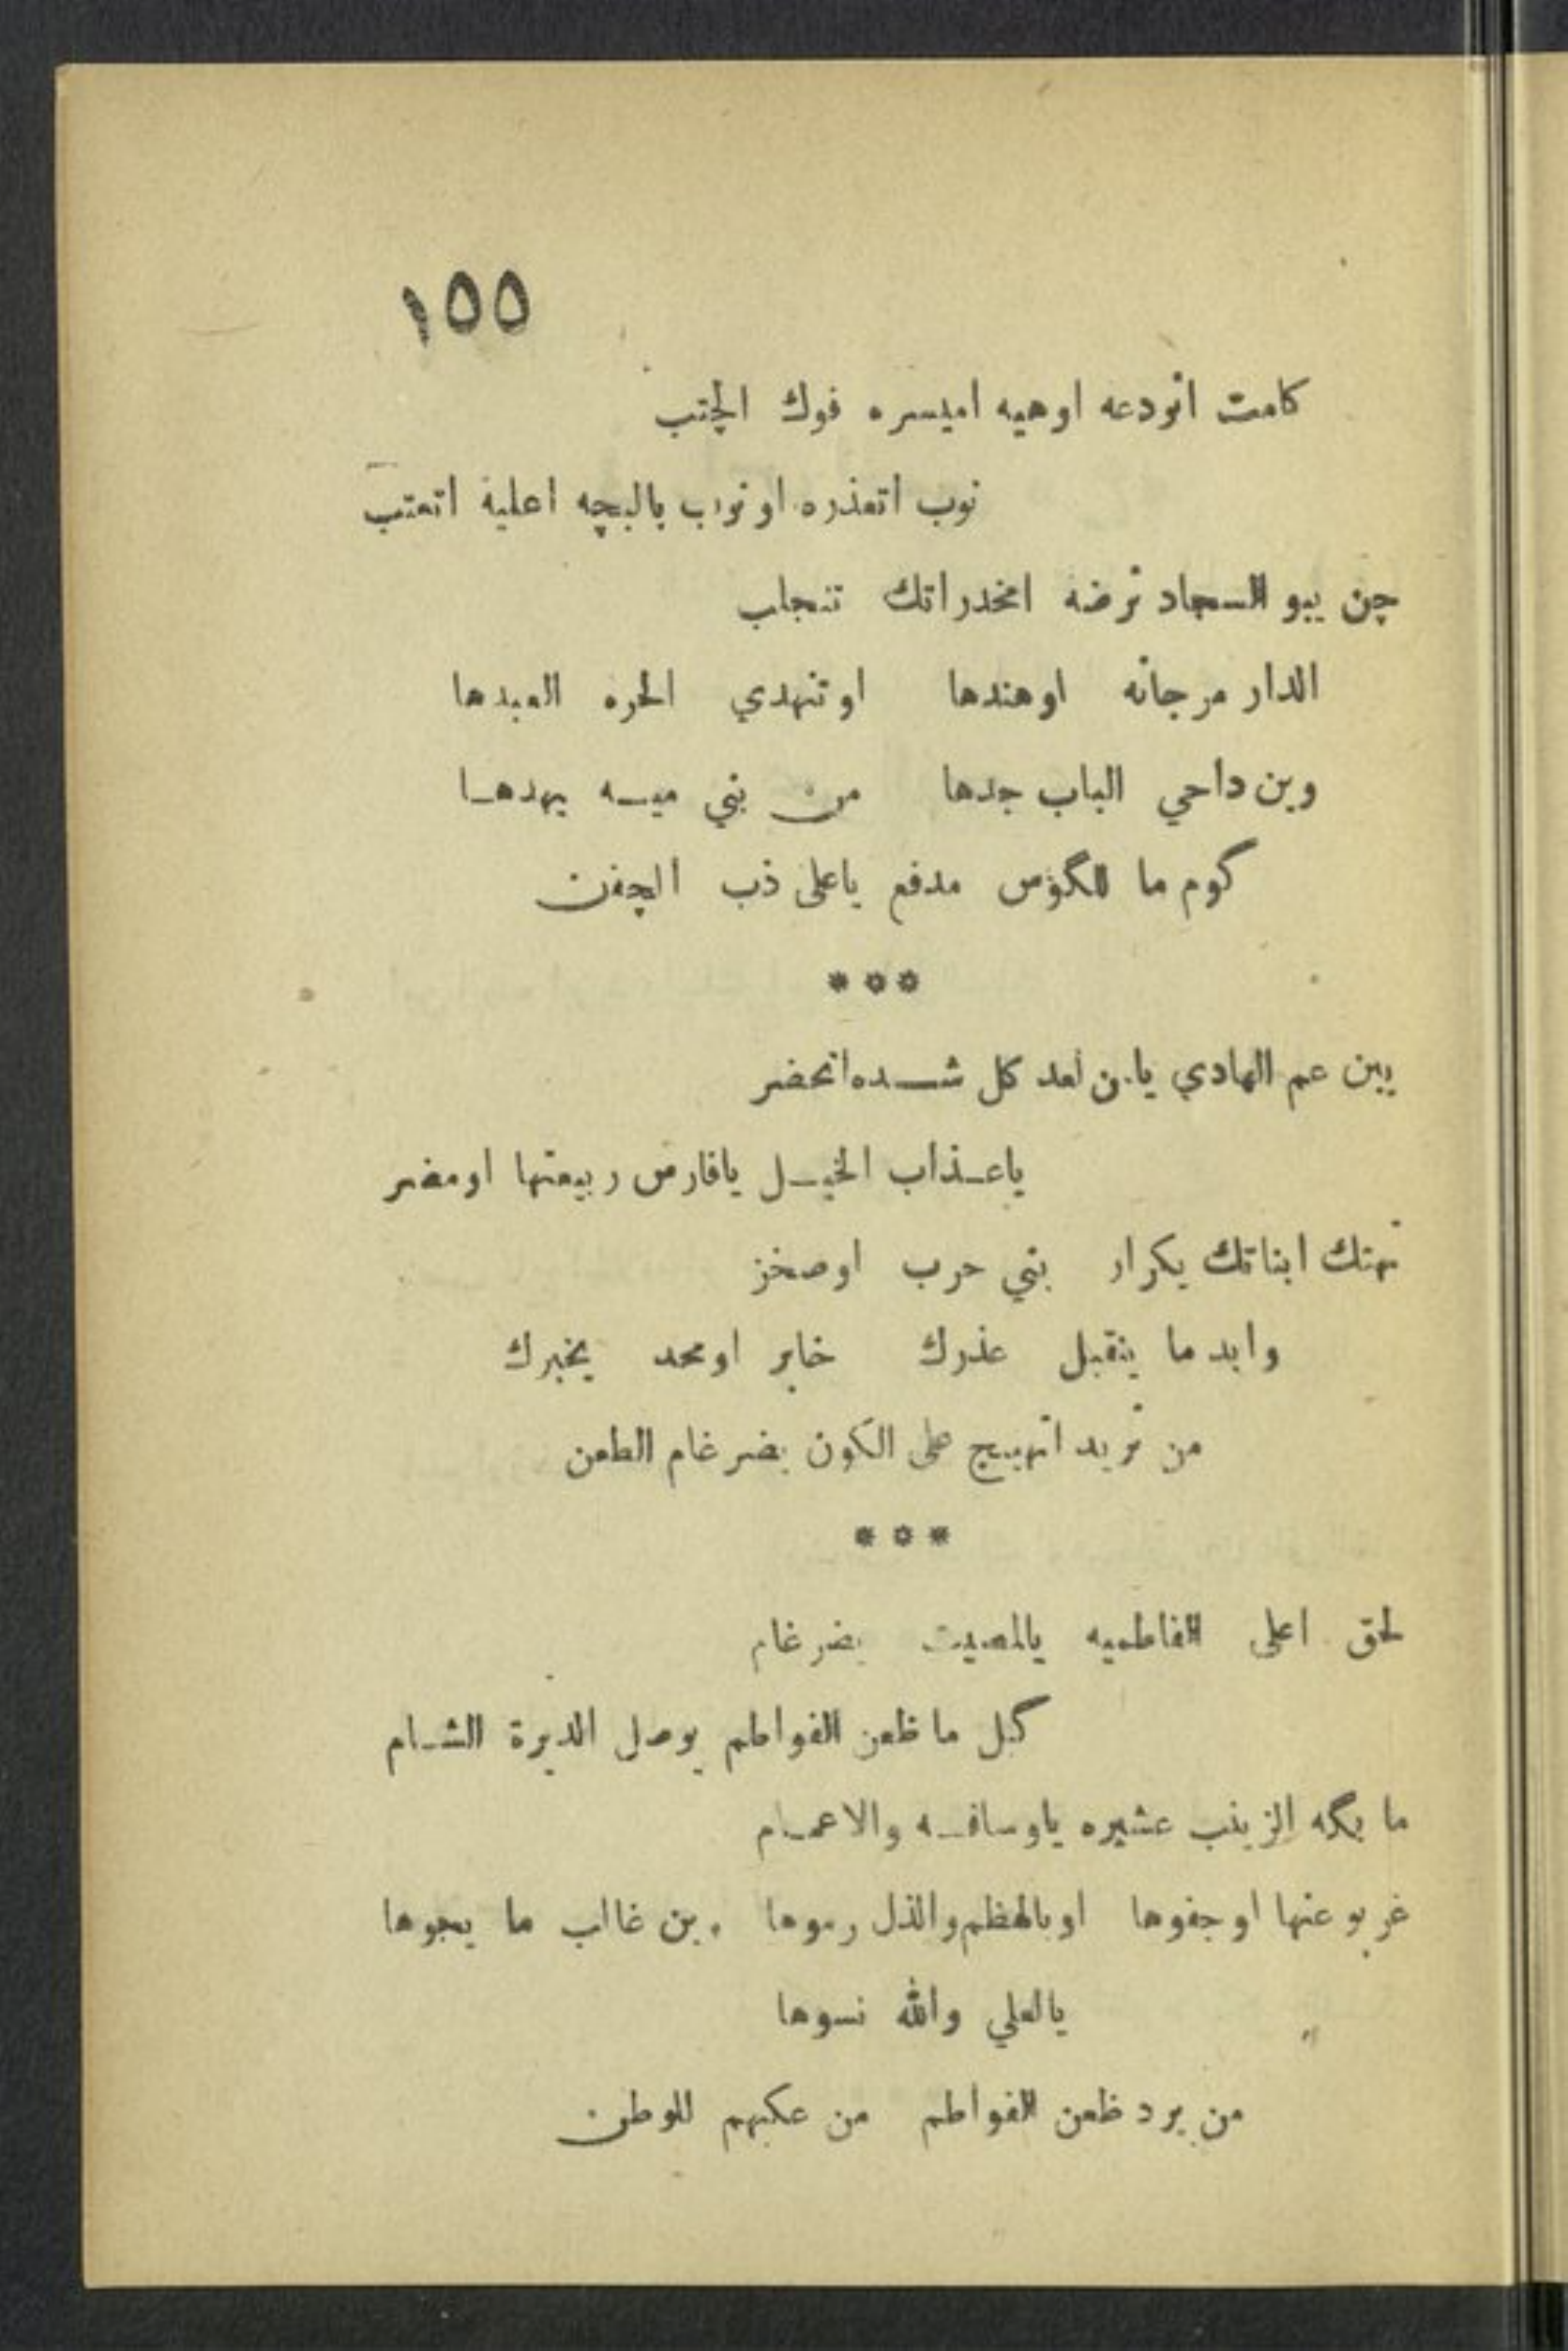 ١٥٥
كامت اتودعه اوهيه اميسره فوك الچتب
نوب اتعذره او نوب بالبچه اعلية اتعتب
چن يبو السجاد ترضه امخدراتك تنجلب
الدار مرجانه اوهندها او تنهدي الحره العبدها
وين داحي الباب جدها من بني ميسه يهدهـا
كوم ما للگؤس مدفع ياعلى ذب الچفن
***
يبن عم الهادي يا من لعد كل شـــده اتحضر
ياعـذاب الخيـل يافارس ربيعتها اومضر
تهتك ابناتك يكرار بني حرب اوصخز
وابد ما ينقبل عذرك خابر اومحد يخبرك
من تريد اتهيج على الكون يضرغام الطعن
***
لحق اعلى الفاطميه يالمصيت يضرغام
گبل ما ظعن الفواطم يوصل الديرة الشـام
ما بگه الزينب عشيره ياوسافـه والاعمـام
غربو عنها اوجفوها اوبالهظم والذل رموها وين غالب ما يجوها
يالعلي والله نسوها
من يرد ظعن الفواطم من عكبهم للوطن